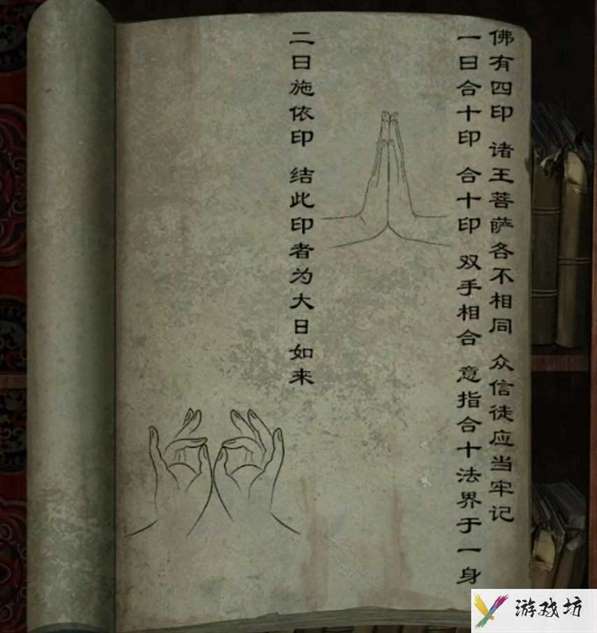 佛有四印 诸王菩萨各不相同 众信徒应当牢记
一曰合十印 合十印 双手相合 意指合十法界于一身
二曰施依印 结此印者为大日如来
游戏坊